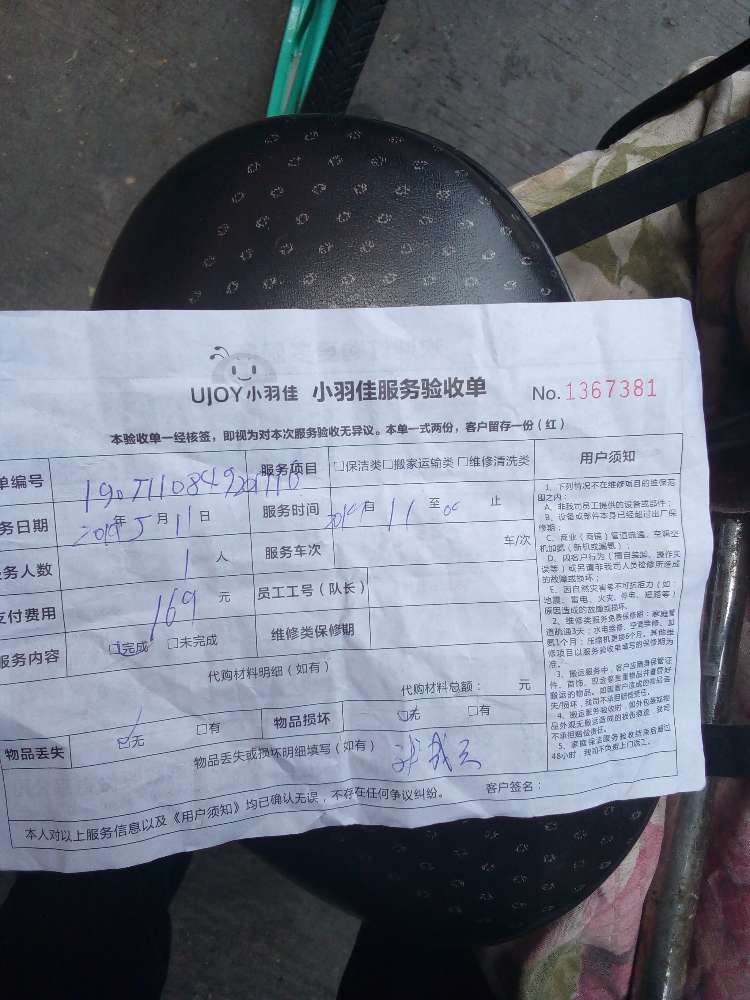 UJOY小羽佳 小羽佳服务验收单 No.1367381
本验收单一经核签，即视为对本次服务验收无异议。本单一式两份，客户留存一份（红）
单编号
服务项目 □保洁类□搬家运输类□维修清洗类
务日期 2019年5月11日
服务时间 自11至 止
务人数 1人
服务车次 车/次
支付费用 169元
员工工号（队长）
服务内容 ☑完成 □未完成
维修类保修期
代购材料明细（如有）
代购材料总额： 元
物品丢失 ☑无 □有
物品损坏 ☑无 □有
物品丢失或损坏明细填写（如有）
本人对以上服务信息以及《用户须知》均已确认无误，不存在任何争议纠纷。 客户签名：
用户须知
1、下列情况不在维修项目的维保范
围之内：
A、非我司员工提供的设备或部件；
B、设备或部件本身已经超过出厂保
修期；
C、商业（商铺）管道疏通、空调空
机加氨（新机或漏氨）；
D、因客户行为（擅自装卸、操作失
误等）或另请非我司人员检修所造成
的故障或损坏；
E、因自然灾害等不可抗拒力（如：
地震、雷电、火灾、停电、短路等）
原因造成的故障或损坏。
2、维修类服务免费保修期：家庭管
道疏通3天；水电维修、空调维修、加
氨1个月；压缩机更换6个月。其他维
修项目以服务验收单填写的保修期为
准。
3、搬运服务中，客户应随身保管证
件、首饰、现金等贵重物品并看管好
失/损坏，我司不承担赔偿责任。
不承担赔偿责任。
5、家庭保洁服务验收结束后超过
48小时，我司不负责上门返工。